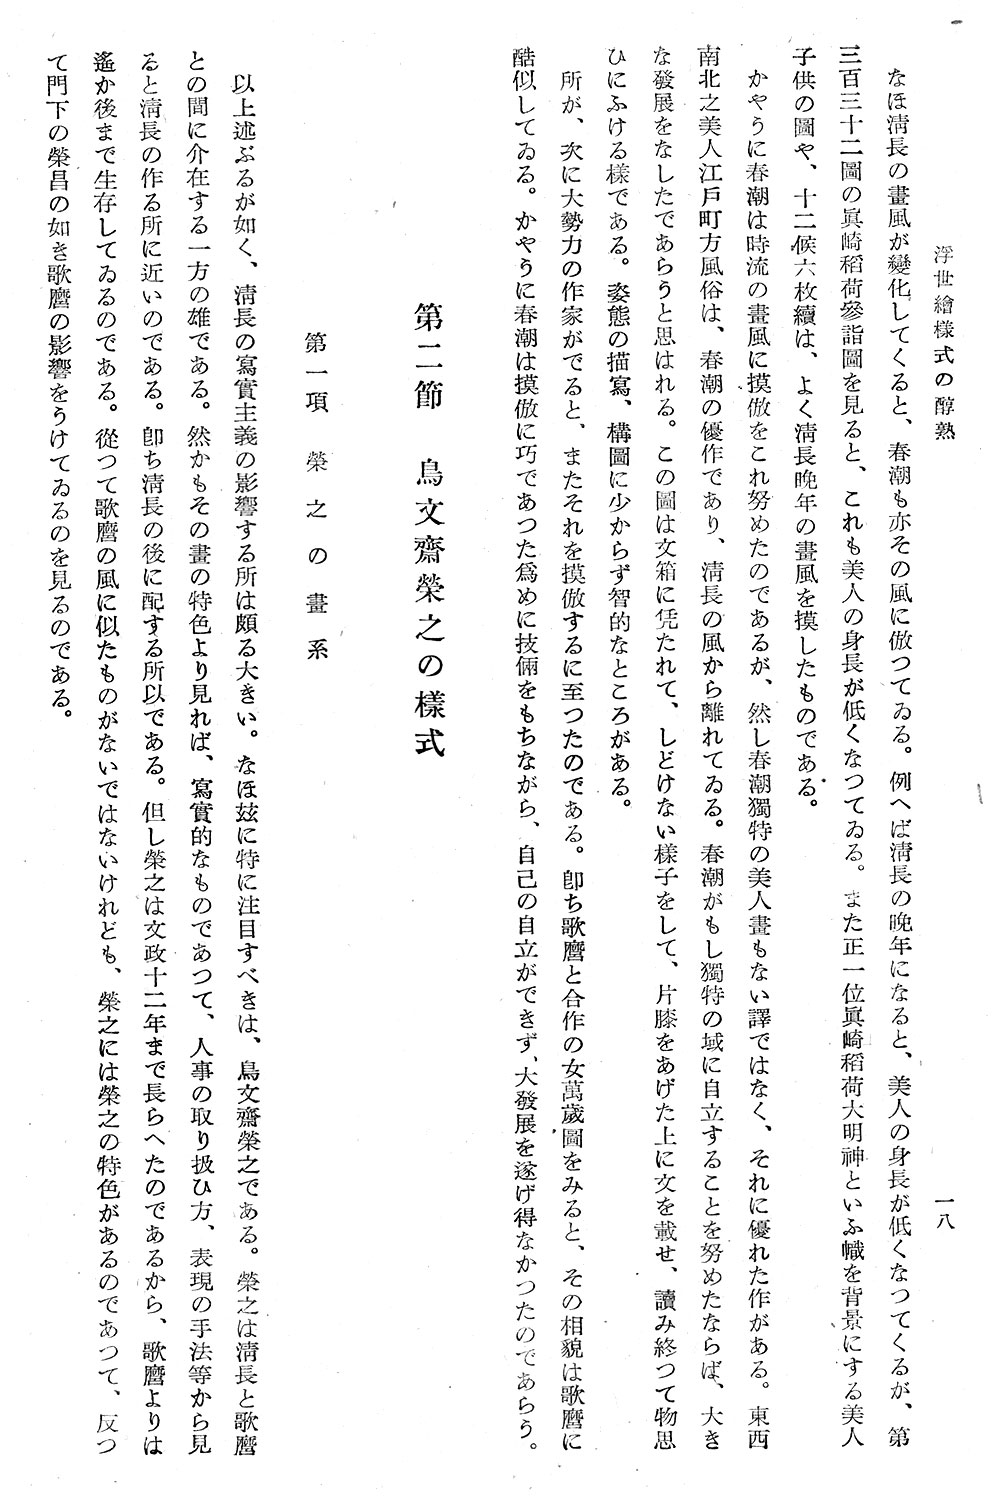 浮世繪樣式の醇熟
一八
なほ淸長の畫風が變化してくると、春潮も亦その風に倣つてゐる。例へば淸長の晩年になると、美人の身長が低くなつてくるが、第
三百三十二圖の眞崎稻荷參詣圖を見ると、これも美人の身長が低くなつてゐる。また正一位眞崎稻荷大明神といふ幟を背景にする美人
子供の圖や、十二候六枚續は、よく淸長晩年の畫風を摸したものである。
かやうに春潮は時流の畫風に摸倣をこれ努めたのであるが、然し春潮獨特の美人畫もない譯ではなく、それに優れた作がある。東西
南北之美人江戶町方風俗は、春潮の優作であり、淸長の風から離れてゐる。春潮がもし獨特の域に自立することを努めたならば、大き
な發展をなしたであらうと思はれる。この圖は文箱に凭たれて、しどけない樣子をして、片膝をあげた上に文を載せ、讀み終つて物思
ひにふける樣である。姿態の描寫、構圖に少からず智的なところがある。
所が、次に大勢力の作家がでると、またそれを摸倣するに至つたのである。卽ち歌麿と合作の女萬歲圖をみると、その相貌は歌麿に
酷似してゐる。かやうに春潮は摸倣に巧であつた爲めに技倆をもちながら、自己の自立ができず、大發展を遂げ得なかつたのであらう。
第二節　鳥文齋榮之の樣式
第一項　榮之の畫系
以上述ぶるが如く、淸長の寫實主義の影響する所は頗る大きい。なほ玆に特に注目すべきは、鳥文齋榮之である。榮之は淸長と歌麿
との間に介在する一方の雄である。然かもその畫の特色より見れば、寫實的なものであつて、人事の取り扱ひ方、表現の手法等から見
ると淸長の作る所に近いのである。卽ち淸長の後に配する所以である。但し榮之は文政十二年まで長らへたのであるから、歌麿よりは
遙か後まで生存してゐるのである。從つて歌麿の風に似たものがないではないけれども、榮之には榮之の特色があるのであつて、反つ
て門下の榮昌の如き歌麿の影響をうけてゐるのを見るのである。